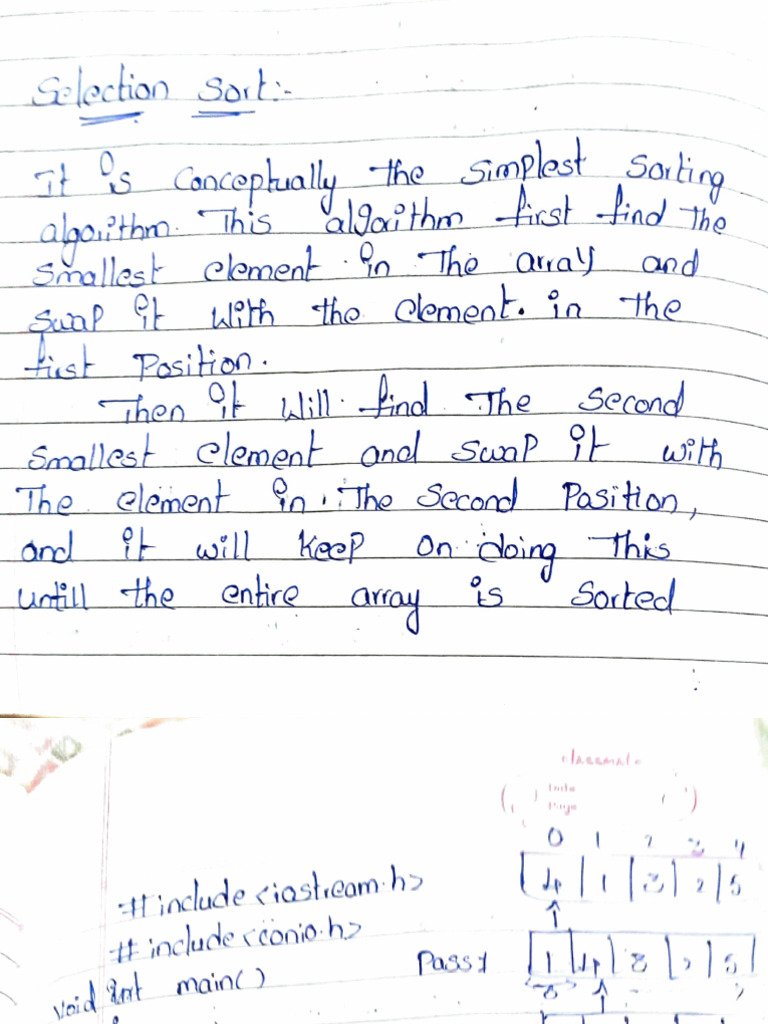 Selection Sort:-
It is Conceptually the simplest Sorting
algorithm. This algorithm first find the
Smallest element in The array and
swap it with the element. in the
first Position.
Then it will find The Second
Smallest element and swap it with
The element in The Second Position,
and it will keep on doing This
untill the entire array is Sorted
classmate
Date
Page
0 1 2 3 4
4 1 3 2 5
#include <iostream.h>
# include <conio.h>
Pass 1 1 4 3 2 5
void int main()